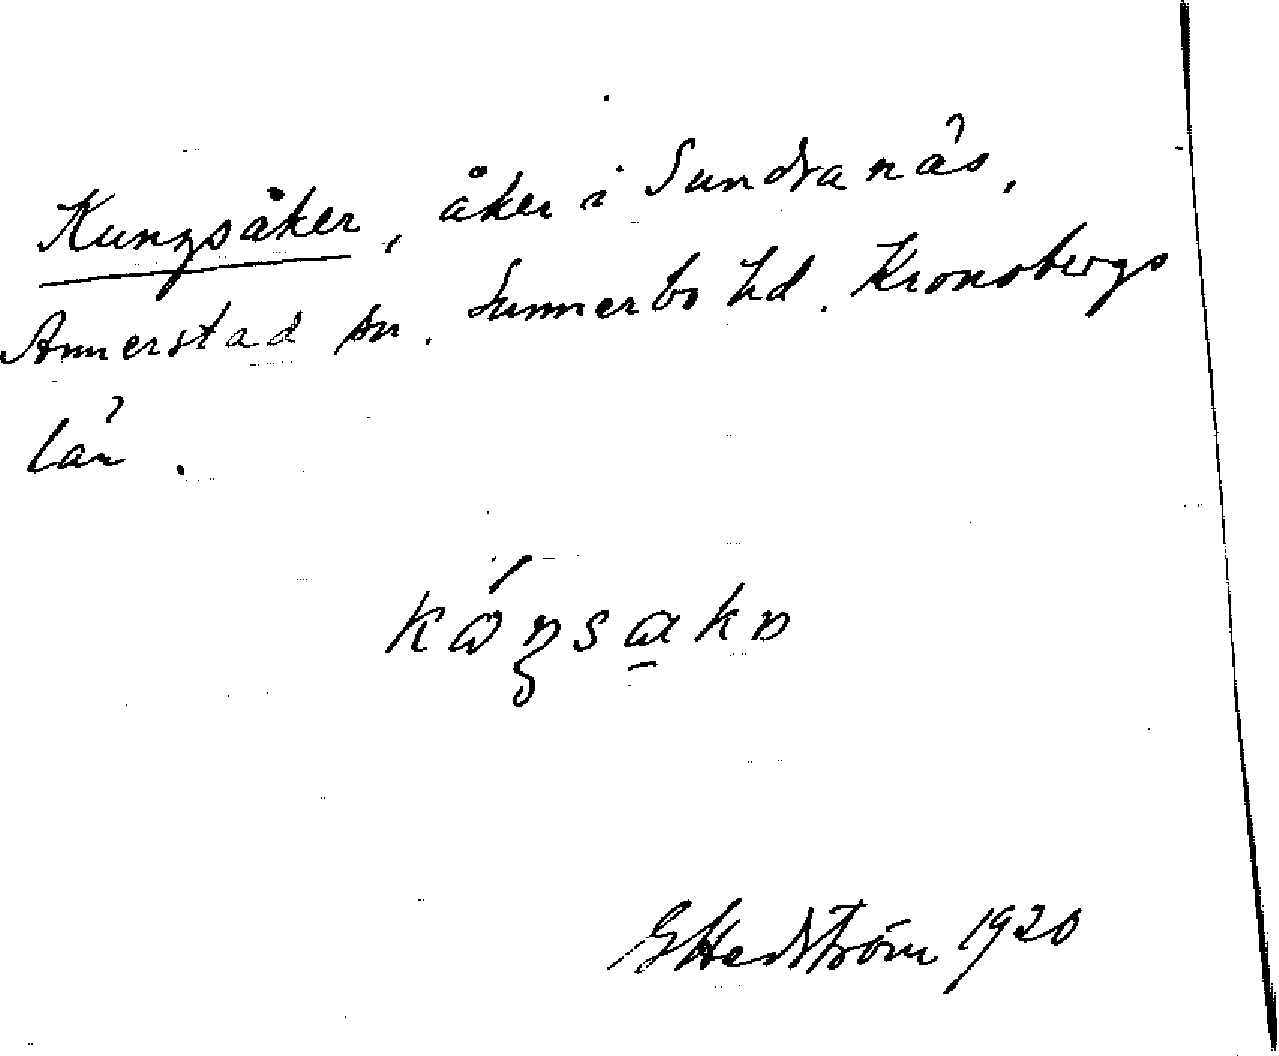 Kungsåker, åker i Sundranäs,
Annerstad sn. Sunnerbo hd. Kronobergs
län.
G Hedström 1920